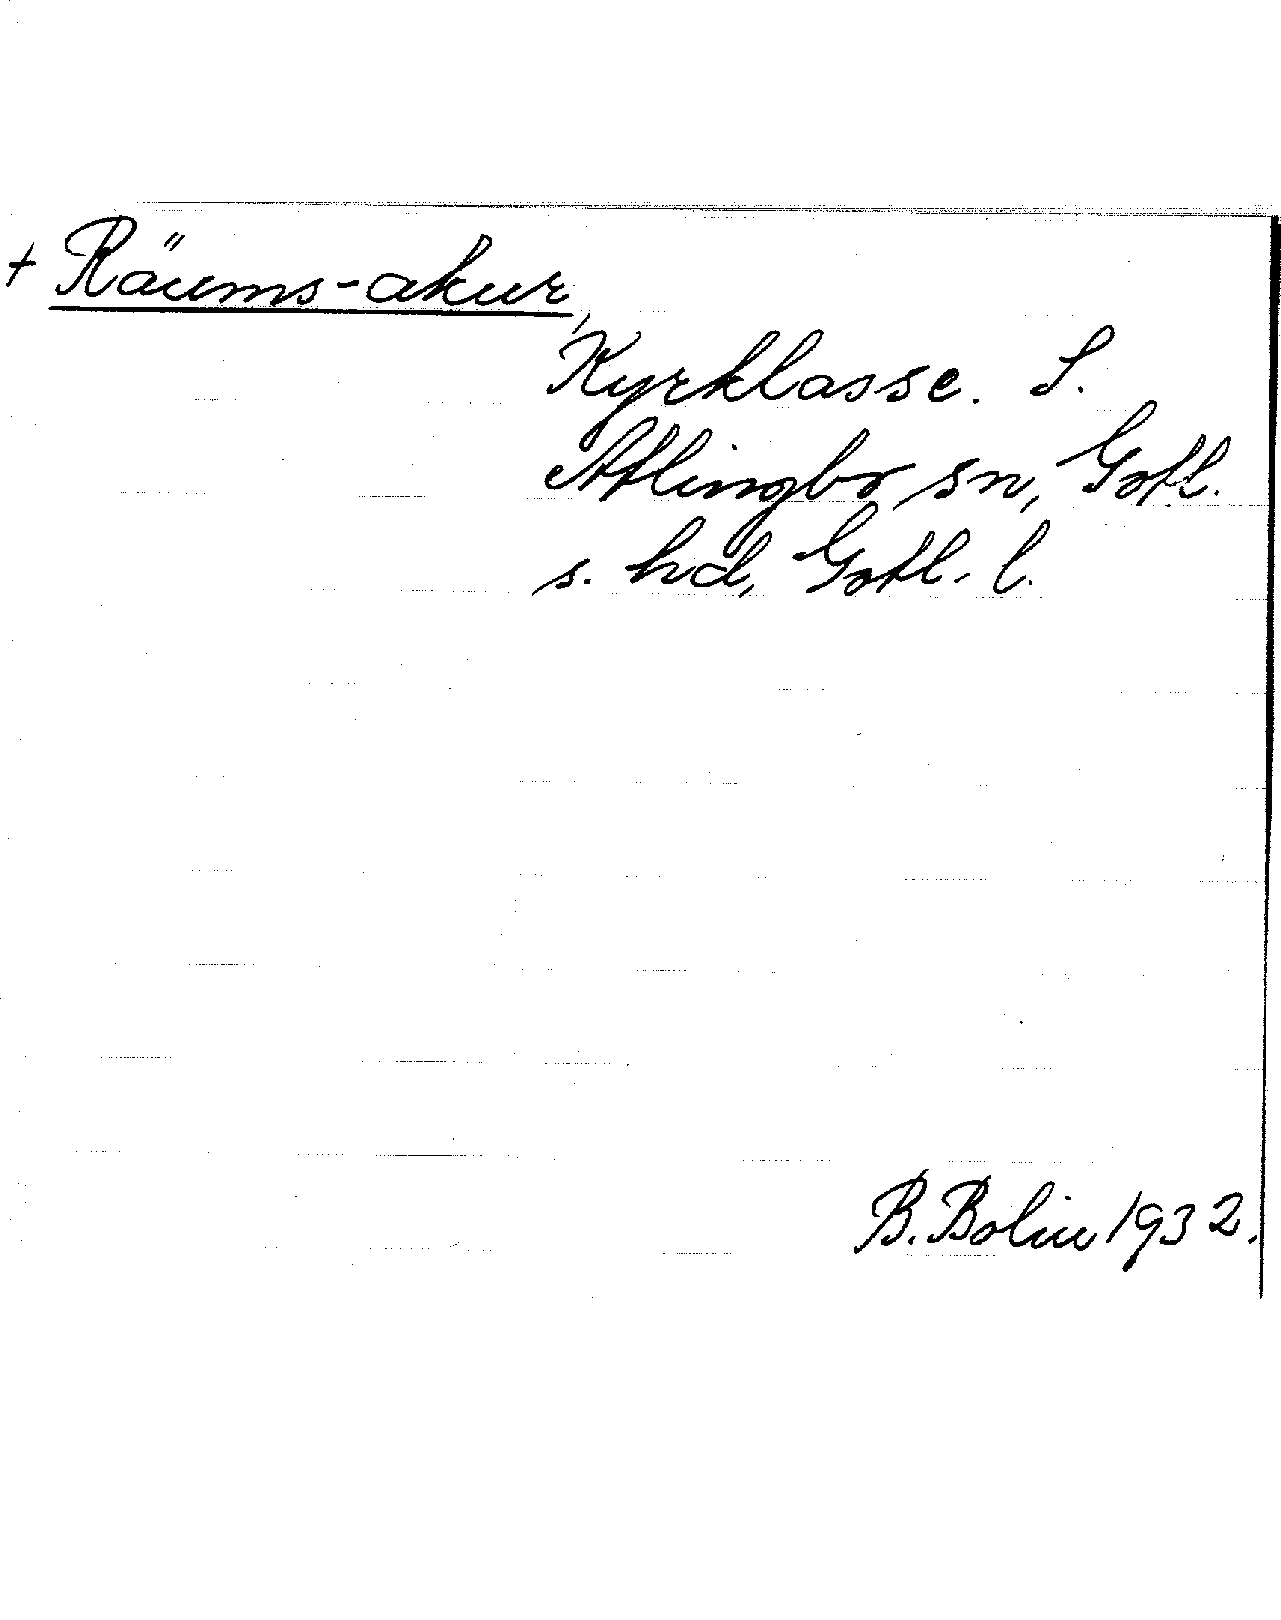 + Räums-akur,
Kyrklasse. S.
Atlingbo sn, Gotl.
s. hd, Gotl. l.
B. Bolin 1932.